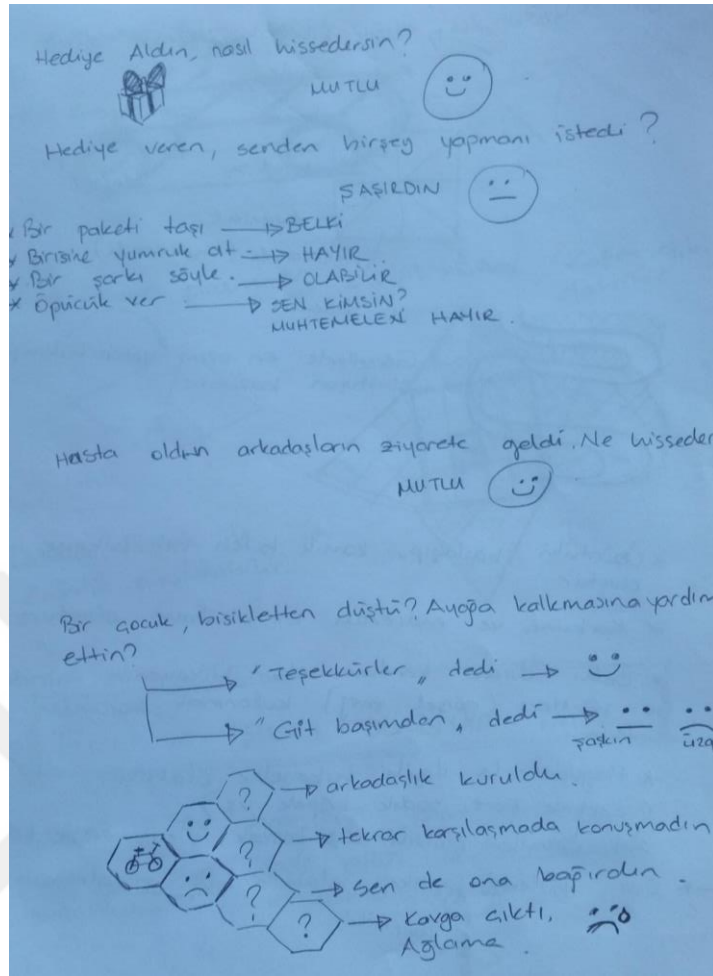 Hediye Aldın, nasıl hissedersin?
MUTLU
Hediye veren, senden birşey yapmanı istedi?
ŞAŞIRDIN
* Bir paketi taşı → BELKİ
* Birisine yumruk at → HAYIR
* Bir şarkı söyle. → OLABİLİR
* Öpücük ver → SEN KİMSİN?
MUHTEMELEN HAYIR.
Hasta oldun arkadaşların ziyarete geldi. Ne hisseder
MUTLU
Bir çocuk, bisikletten düştü? Ayağa kalkmasına yardım
ettin?
"Teşekkürler" dedi →
"Git başımdan" dedi →
şaşkın üzg
? → arkadaşlık kuruldu.
? → tekrar karşılaşmada konuşmadın
? → Sen de ona bağırdın.
? → Kavga çıktı,
Ağlama.